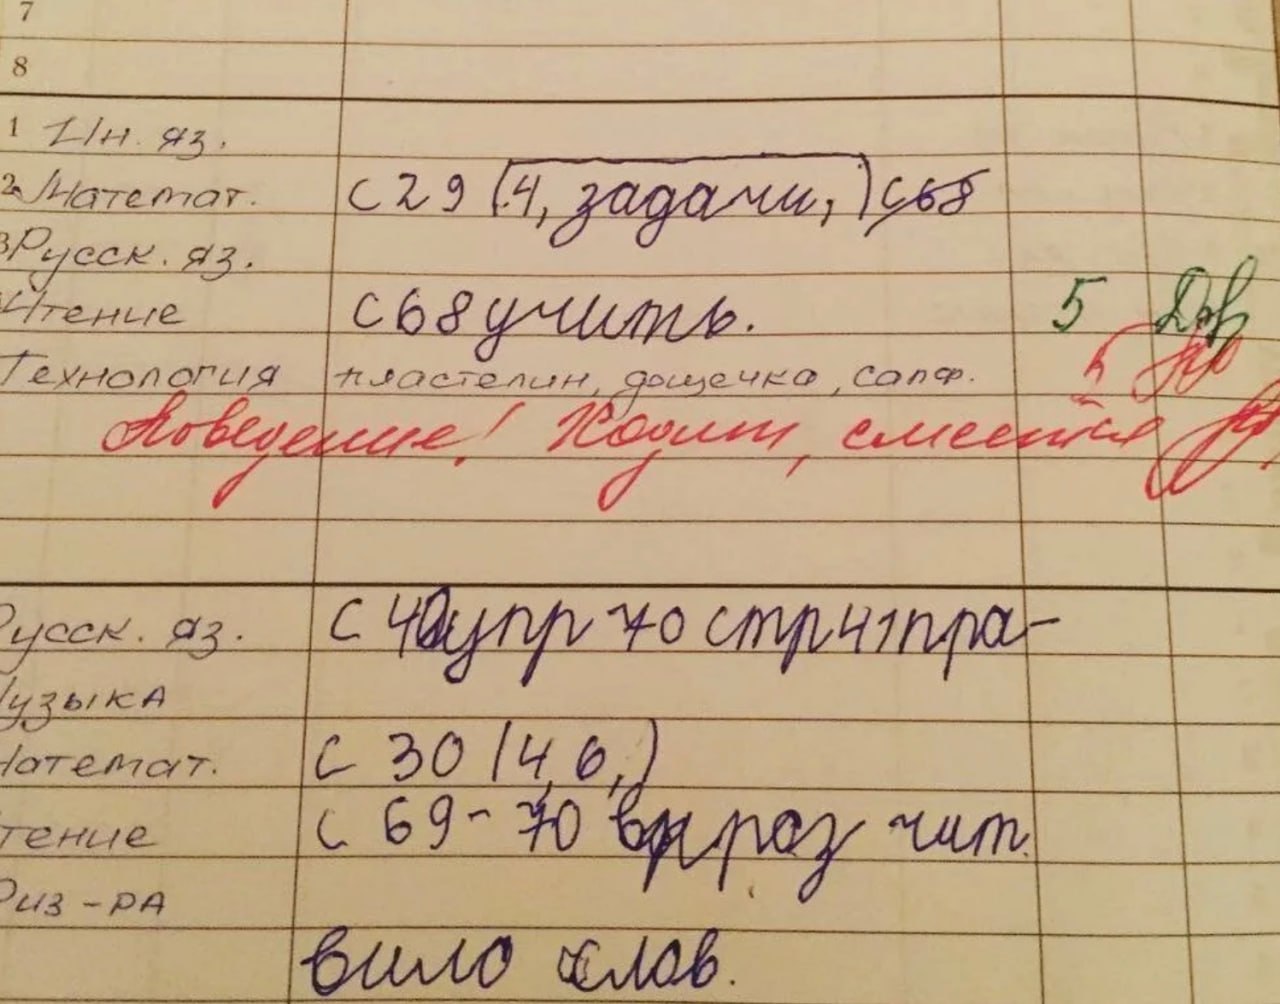 7
8
1 Ин. яз.
2 Математ. с 29 (4, задачи,) с68
3 Русск. яз.
Чтение с 68 учить. 5
Технология пластелин, дощечка, салф. 5
Поведение! Ходит, смеётся
Русск. яз. с 40 упр 70 стр 41 пра-
Музыка
Математ. с 30 (4, 6,)
Чтение с 69-70 выраз чит.
Физ-ра
вило слов.